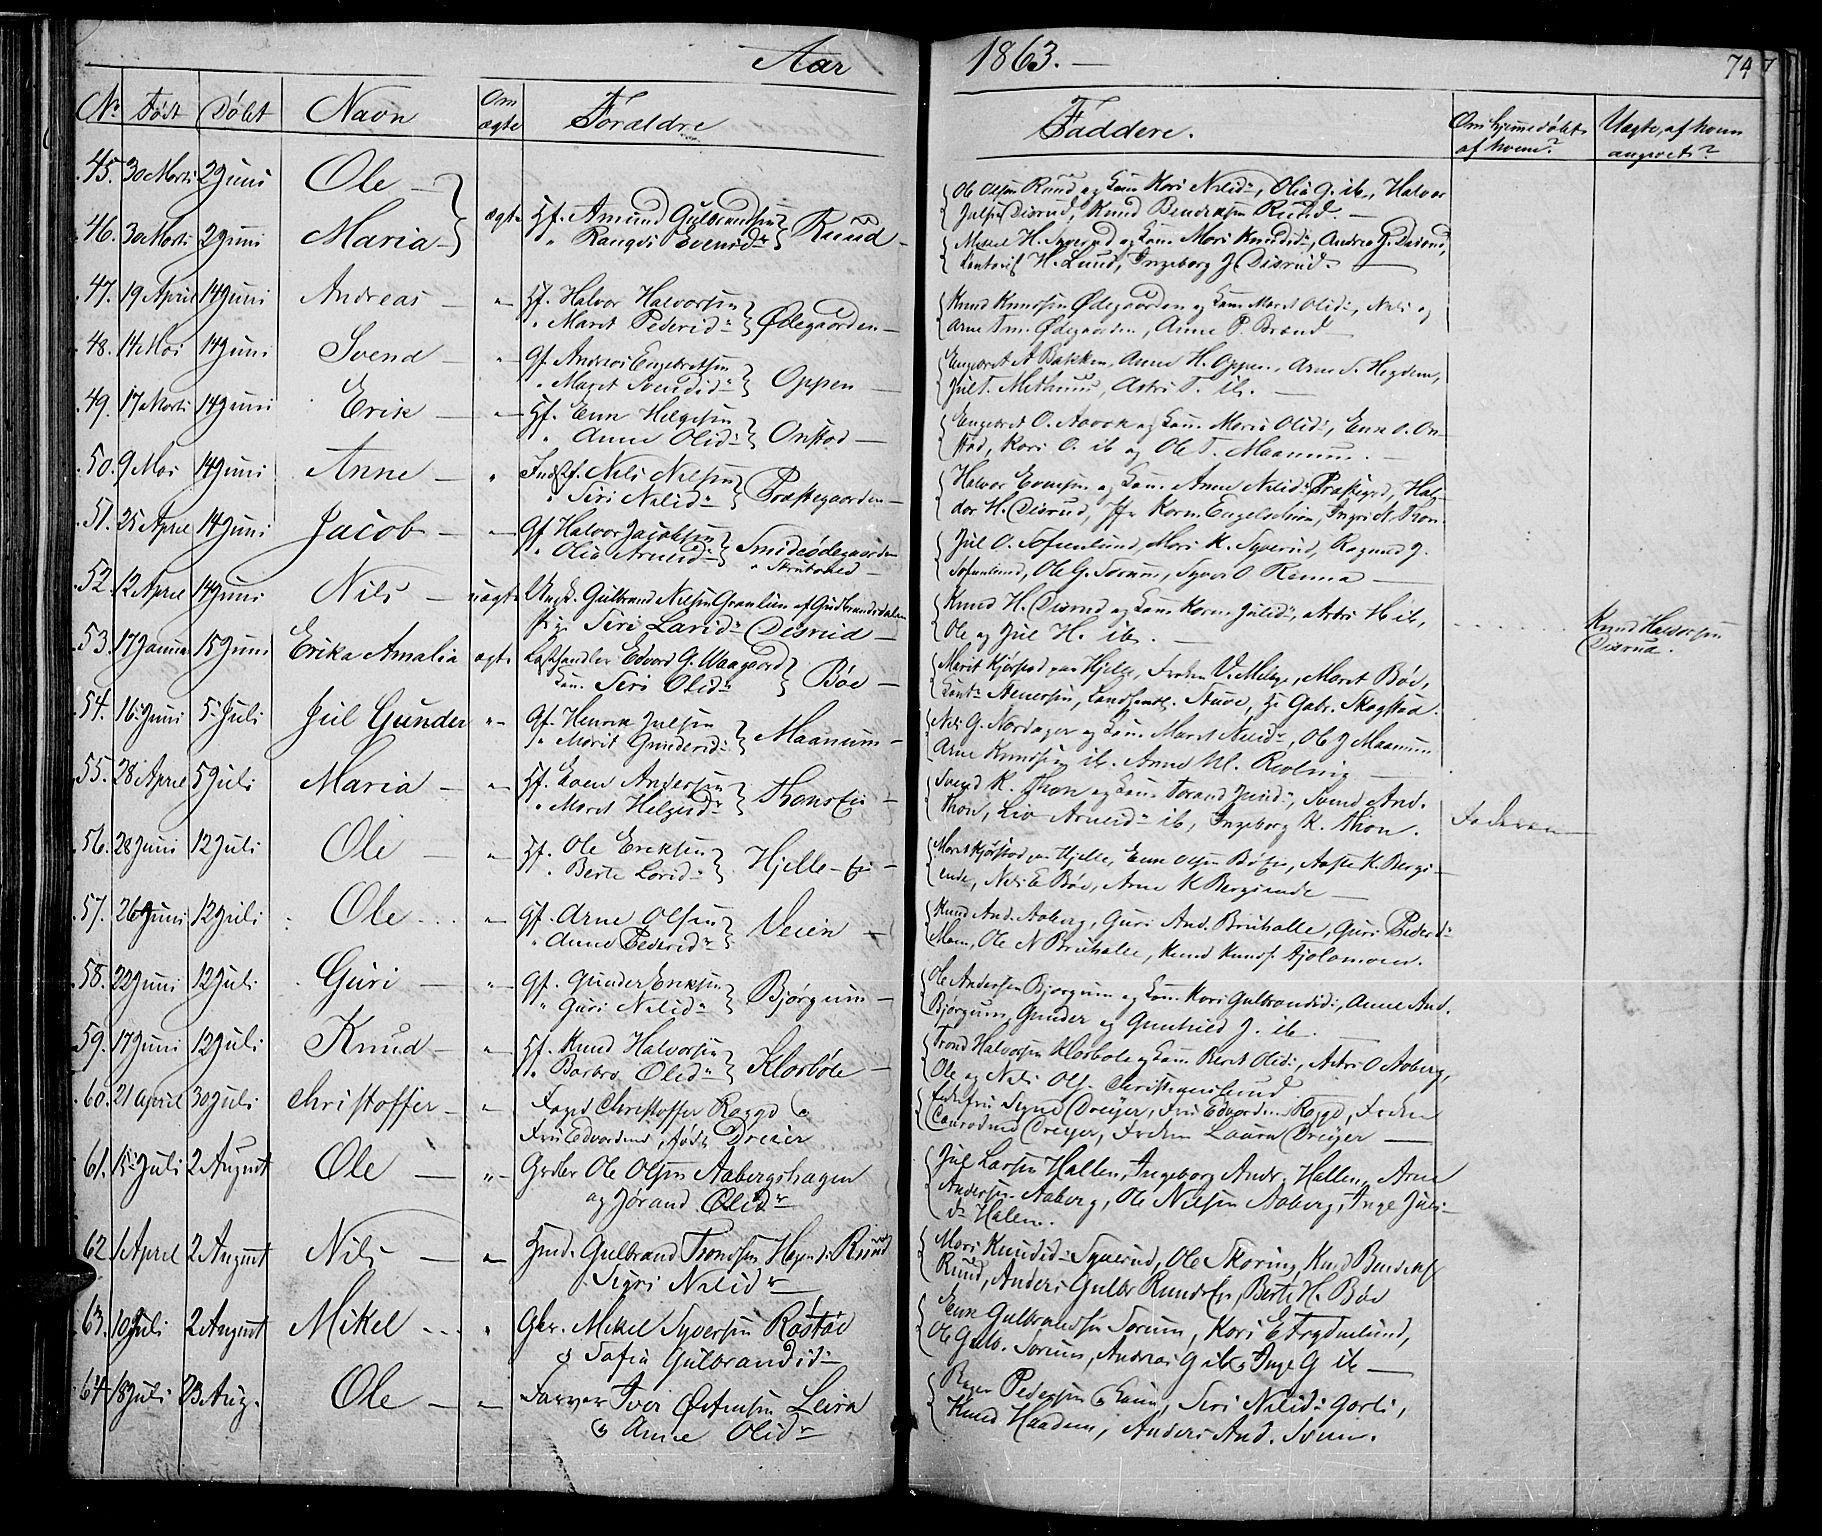 Aar 1863. — 74
No Født Døbt Navn Om ægte Foraldre Faddere. Om hjemmedøbt, af hvem? Uægte, af hvem angivet?
45. 30 Marts 2 Juni Ole —
46. 30 Marts 2 Juni Maria — ægte Gf. Amund Gulbrandsen
" Rangdi Svensdr Ruud —
Ole Olsen Ruud og Kone Kari Nilsdr, Olia G. ib., Halvor
Julsen Disrud, Knud Bendiksen Ruud. —
Mikkel H. Syverud og Kone Mari Knudsdr, Andrea J. Disrud,
H. Lund, Ingeborg J. Disrud. —
47. 19 April 14 Juni Andreas — " Gf. Halvor Halvorsen
" Marit Pedersdr Ødegaarden —
Knud Knudsen Ødegaarden og Kone Marit Olsdr, Nils og
Arne Ødegaarden, Anne P. Brænd
48. 14 Mai 14 Juni Svend — " Gf. Andreas Engebretsen
" Marget Svendsdr Oppen —
Engebret A. Bakken, Anne H. Oppen, Arne S. Hegdem,
Jul T. , Astri T. ib. —
49. 17 Marts 14 Juni Erik — " Gf. Even Helgesen
" Anne Olsdr Onstad —
Engebret O. og Kone Marie Olsdr, Even O. On-
stad, Kari O. ib og Ole T. Maanum. —
50. 9 Mai 14 Juni Anne — " Nils Nilsen
" Siri Nilsdr Præstegaarden —
Halvor Evensen og Kone Anne Nilsdr Præstegrd, Hal-
dor H. Disrud, Karen Engelschiøn, Ingri N. Thon.
51. 25 April 14 Juni Jacob — — Gf. Halvor Jacobsen
" Olia Arnesdr Smideødegaarden
Jul O. Sofienlund, Mari K. Syverud, Ragned J.
Sofienlund, Ole G. Sorum, Syver O Renna —
52. 12 April 14 Juni Nils — uægte Ungk. Gulbrand Nilsen Granlien af Gudbrandsdalen
Pige Siri Larsdr Disrud —
Knud H. Disrud og Kone Karen Julsdr, Astri H ib,
Ole og Jul H. ib. —
Knud Halvorsen
Disrud.
53. 17 Januar 15 Juni Erika Amalia ægte Landhandler Edvard G. Waagaard
Kone Siri Olsdr Bøe —
Marit Kjørstad Hjelle, Frøken V. Melbye, Marit Bøe,
Steuersen, Landhandl. Stuve, Gabr. Skagstad.
54. 16 Juni 5 Juli Jul Gunder "- Gf. Henrik Julsen
" Marit Gundersdr Maanum —
Nils G. Nordager og Kone Marit Nilsdr, Ole J Maanum
Arne Knudsen ib. Anne M. —
55. 28 April 5 Juli Maria — " Gf. Even Andersen
" Marit Helgesdr Thonsei —
Svend K. Thon og Kone Jorand Juulsdr, Svend And.
Thon, Liv Arnesdr ib, Ingeborg K. Thon.
Faderen —
56. 28 Juni 12 Juli Ole — " Gf. Ole Eriksen
" Berte Larsdr Hjelle-Ei —
Marit Kjørstad Hjelle, Even Olsen Bøe, Aaste K. Bergs-
ende, Nils E Bøe, Arne K Bergsende —
57. 26 Juni 12 Juli Ole — " Gf. Arne Olsen
" Anne Pedersdr Veien —
Knud And. Aaberg, Guri And. Bruhalle, Guri Pedersdr
Moen, Ole N Bruhalle, Knud Knuds. Hjolamoen.
58. 22 Juni 12 Juli Guri — "- Gf. Gunder Eriksen
" Guri Nilsdr Bjørgum —
Ole Andersen Bjørgum og Kone Kari Gulbrandsdr, Anne And.
Bjørgum, Gunder og Gunhild J. ib —
59. 17 Juni 12 Juli Knud — " Gf. Knud Halvorsen
" Barbro Olsdr Klosbøle —
Trond Halvorsen Klosbøle og Kone Berit Olsdr, Astri O Aaberg,
Ole og Nils Ols. Christianslund
60. 21 April 30 Juli Christoffer — " Foged Christoffer Rogge
Frue Edvardine, født Dreier
Frue Signe Dreyer, Frue Edvardine Rogge, Frøken
Dreyer, Frøken Laura Dreyer —
61. 15 Juli 2 August Ole — "- Grdbr Ole Olsen Aabergshagen
og Jørand Olsdr
Jul Larsen Hallen, Ingeborg Andr. Hallen, Arne
Andersen Aaberg, Ole Nilsen Aaberg, Inge Juls-
dr Halen.
62. 1 April 2 August Nils — " Hmd. Gulbrand Trondsen Ruud
Sigri Nilsdr
Mari Knudsdr Syverud, Ole Skoring, Knud Bendiks.
Ruud, Anders Gulbr Ruud, Berte H. Bøe
63. 10 Juli 2 August Mikel — " Gbr. Mikel Syversen Røstøe
og Sofia Gulbrandsdr
Even Gulbrandsen Sorum, Kari E Frydenlund,
Ole Gulb. Sorum, Andreas G ib, Inge G ib —
64. 18 Juli 23 Aug. Ole — " Farver Iver Østensen Leira
og Anne Olsdr
Pedersen og Kone, Siri Nilsdr Garli,
Knud Haadem, Anders And. Svenn.